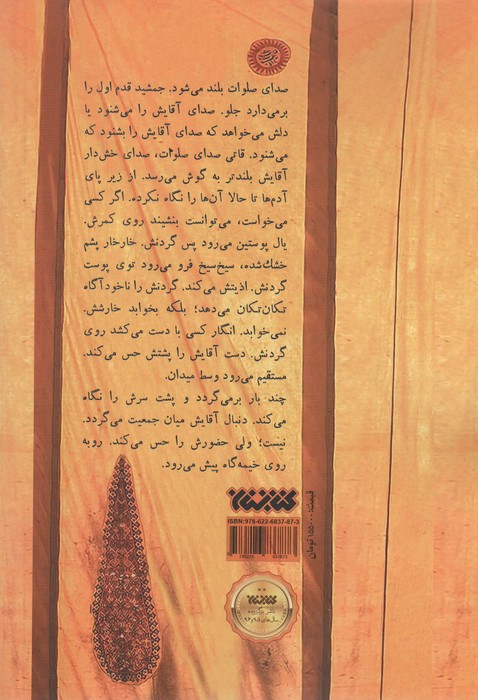 صدای صلوات بلند می‌شود. جمشید قدم اول را
برمی‌دارد جلو. صدای آقایش را می‌شنود یا
دلش می‌خواهد که صدای آقایش را بشنود که
می‌شنود. قاتی صدای صلوات، صدای خش‌دار
آقایش بلندتر به گوش می‌رسد. از زیر پای
آدم‌ها تا حالا آن‌ها را نگاه نکرده. اگر کسی
می‌خواست، می‌توانست بنشیند روی کمرش.
یال پوستین می‌رود پس گردنش. خارخار پشم
خشک‌شده، سیخ‌سیخ فرو می‌رود توی پوست
گردنش. اذیتش می‌کند. گردنش را ناخودآگاه
تکان‌تکان می‌دهد؛ بلکه بخوابد خارشش.
نمی‌خوابد. انگار کسی با دست می‌کشد روی
گردنش. دست آقایش را پشتش حس می‌کند.
مستقیم می‌رود وسط میدان.
چند بار برمی‌گردد و پشت سرش را نگاه
می‌کند. دنبال آقایش میان جمعیت می‌گردد.
نیست؛ ولی حضورش را حس می‌کند. روبه
روی خیمه‌گاه پیش می‌رود.
کتابستان
ISBN:978-622-6837-87-3
قیمت: ۱۵۵۰۰۰ تومان
کتابستان
ناشر برگزیده
سال‌های ۹۵ و ۹۶